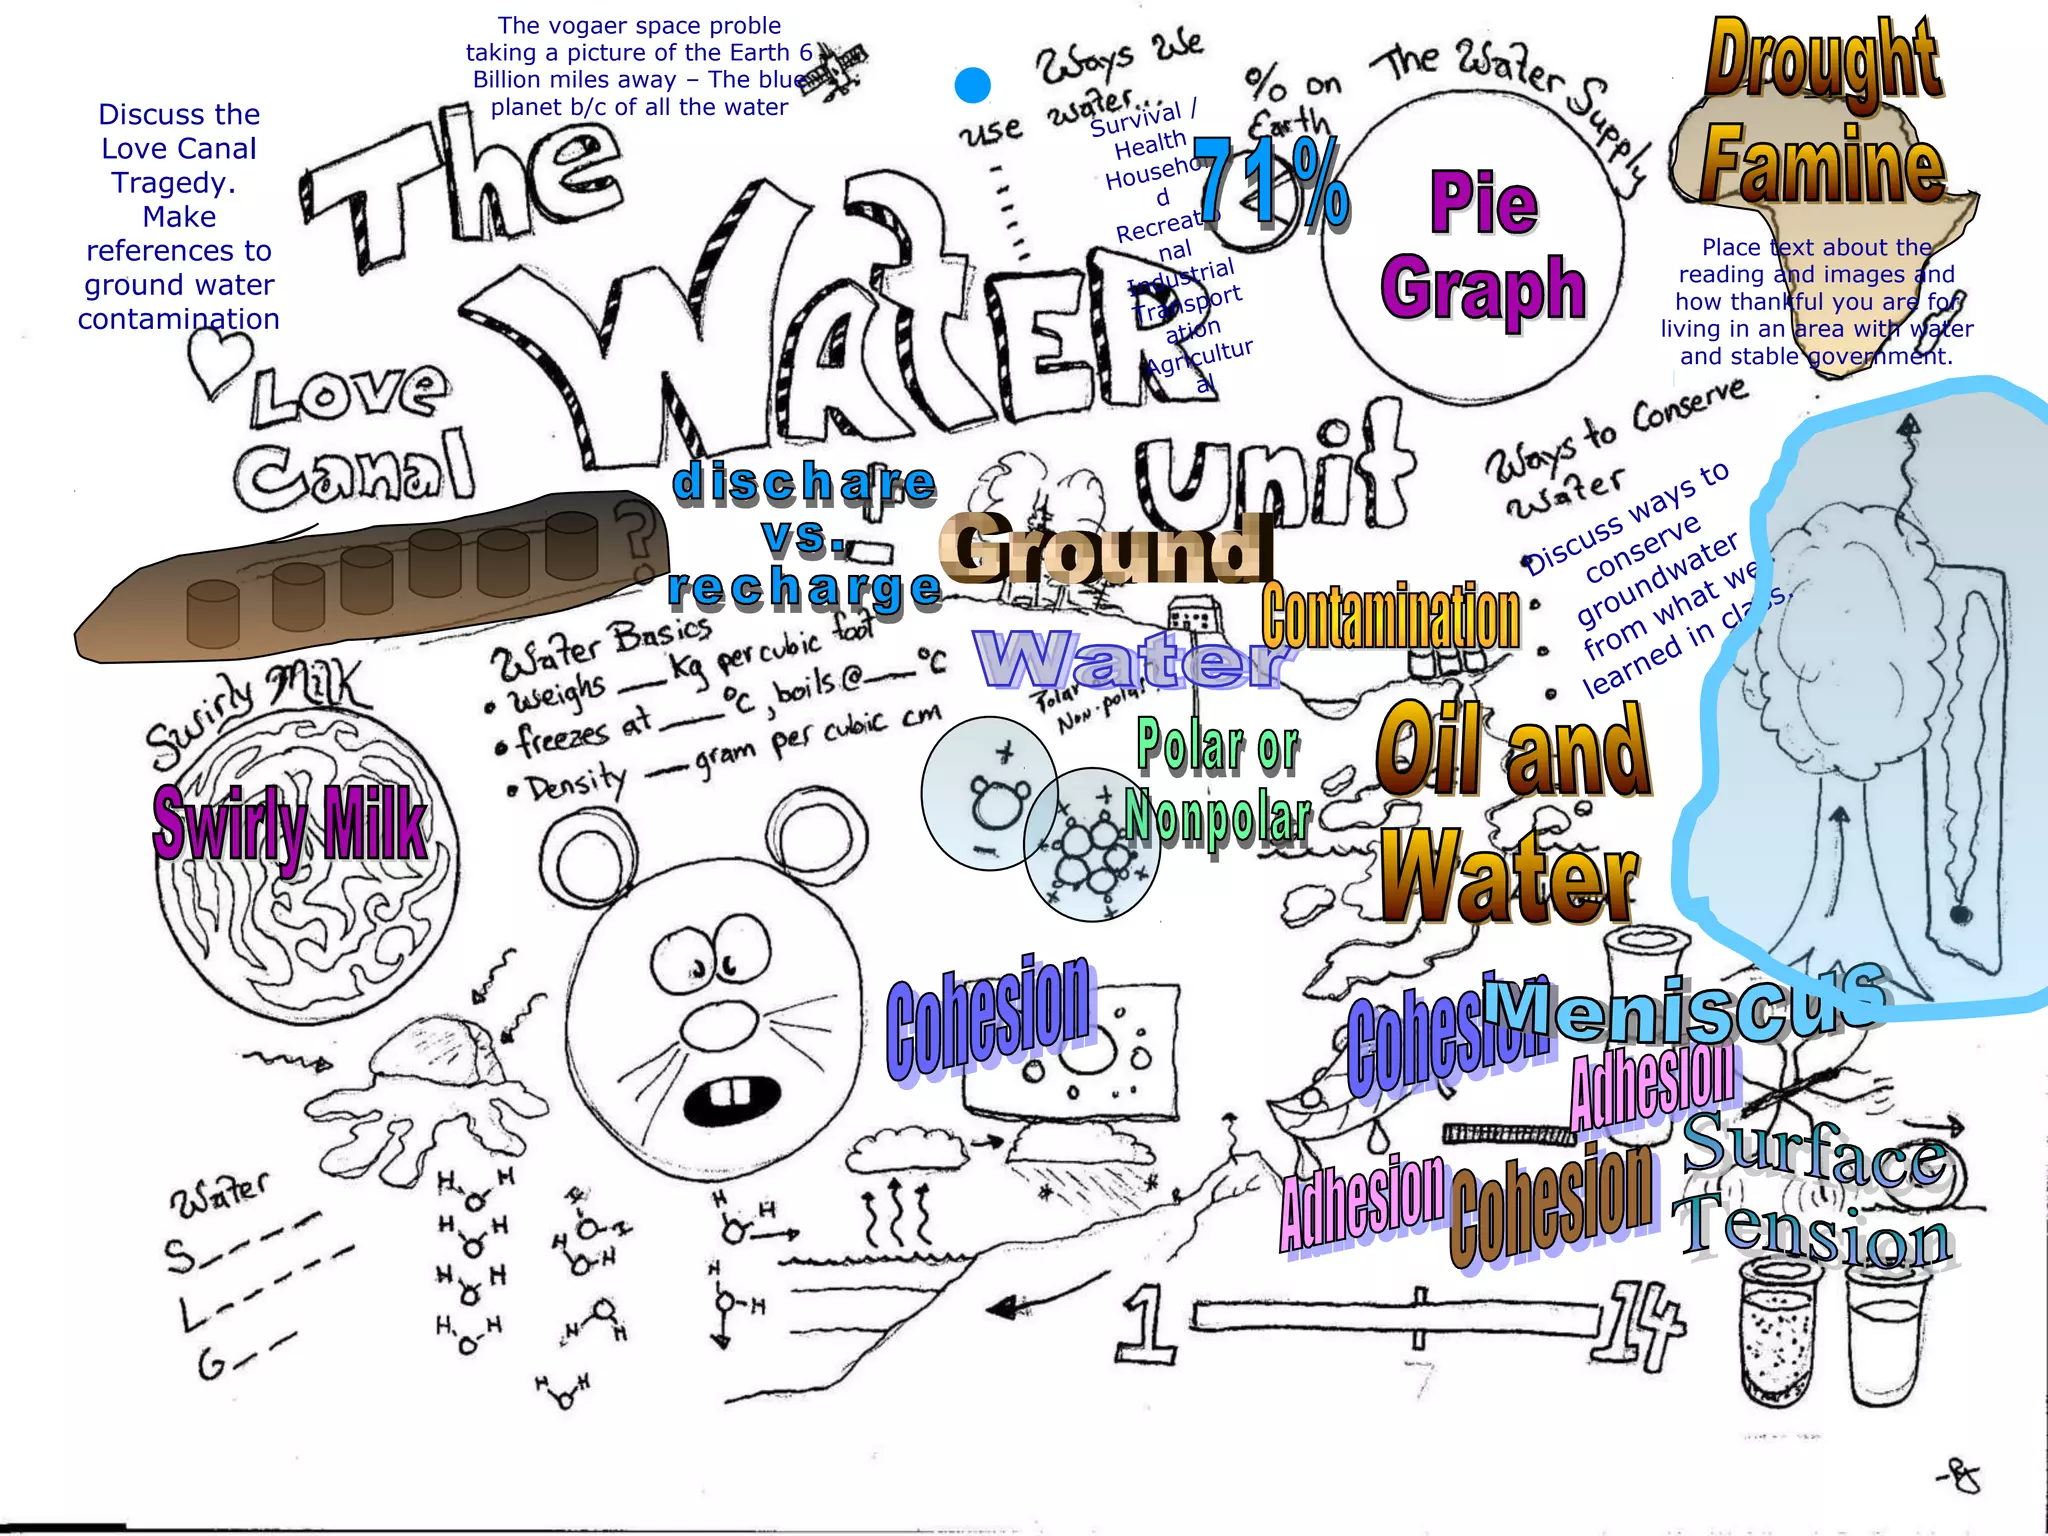 The vogaer space proble
taking a picture of the Earth 6
Billion miles away – The blue
planet b/c of all the water
Discuss the
Love Canal
Tragedy.
Make
references to
ground water
contamination
The
Water
Unit
Ways We
use water...
Survival /
Health
Househol
d
Recreatio
nal
Industrial
Transport
ation
Agricultur
al
% on
Earth
71%
The Water Supply
Pie
Graph
Drought
Famine
Place text about the
reading and images and
how thankful you are for
living in an area with water
and stable government.
Love
Canal
?
dischare
vs.
recharge
Ground
Water
Contamination
Ways to Conserve
Water
Discuss ways to
conserve
groundwater
from what we
learned in class.
Swirly Milk
Swirly Milk
Water Basics
• weighs __ kg per cubic foot
• freezes at ___ °C, boils @ ___ °C
• Density __ gram per cubic cm
Polar
Non-polar
Polar or
Nonpolar
Oil and
Water
Cohesion
Cohesion
Meniscus
Adhesion
Surface
Tension
Adhesion
Cohesion
Water
S_ _ _ _ _
L_ _ _ _ _
G_ _ _
H H
H H
H H
H H
H
H
H
H H
H H
H H
H
H
1
14
7